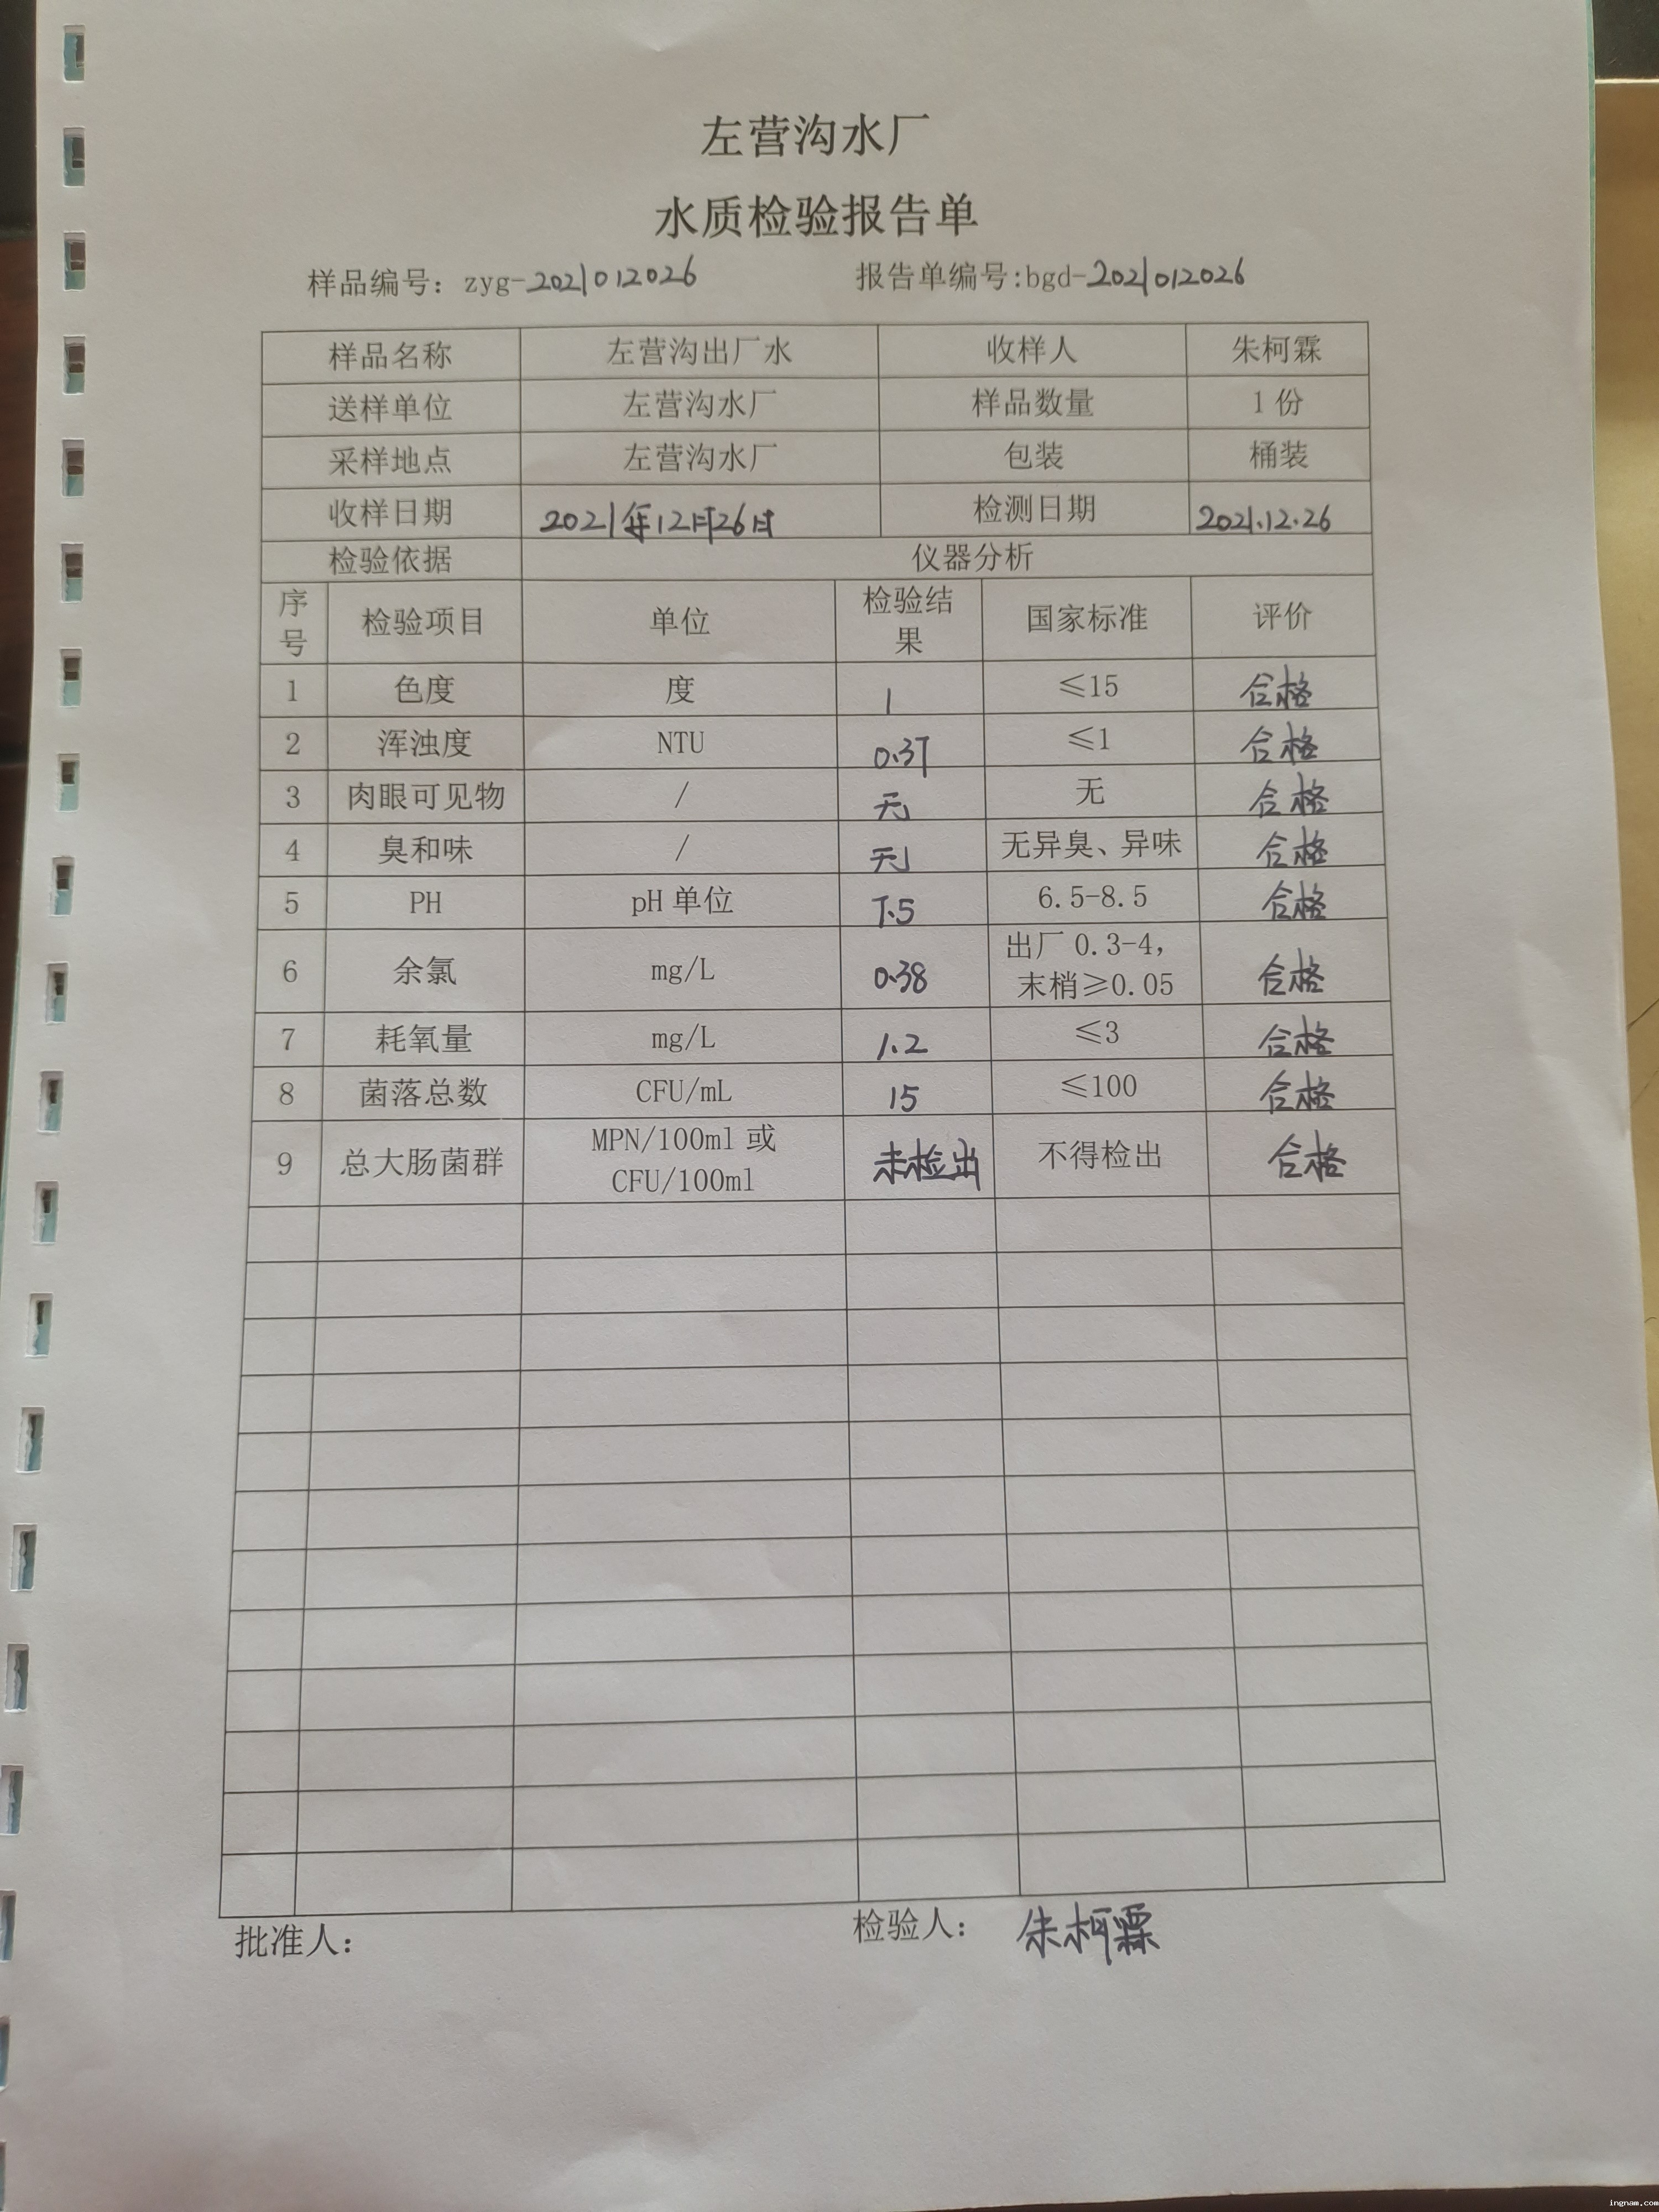 左营沟水厂
水质检验报告单
样品编号：zyg-2021012026 报告单编号:bgd-2021012026
样品名称 左营沟出厂水 收样人 朱柯霖
送样单位 左营沟水厂 样品数量 1份
采样地点 左营沟水厂 包装 桶装
收样日期 2021年12月26日 检测日期 2021.12.26
检验依据 仪器分析
序号 检验项目 单位 检验结果 国家标准 评价
1 色度 度 1 ≤15 合格
2 浑浊度 NTU 0.37 ≤1 合格
3 肉眼可见物 / 无 无 合格
4 臭和味 / 无 无异臭、异味 合格
5 PH pH单位 7.5 6.5-8.5 合格
6 余氯 mg/L 0.38 出厂0.3-4，末梢≥0.05 合格
7 耗氧量 mg/L 1.2 ≤3 合格
8 菌落总数 CFU/mL 15 ≤100 合格
9 总大肠菌群 MPN/100ml或CFU/100ml 未检出 不得检出 合格
批准人： 检验人： 朱柯霖
ingnam.com